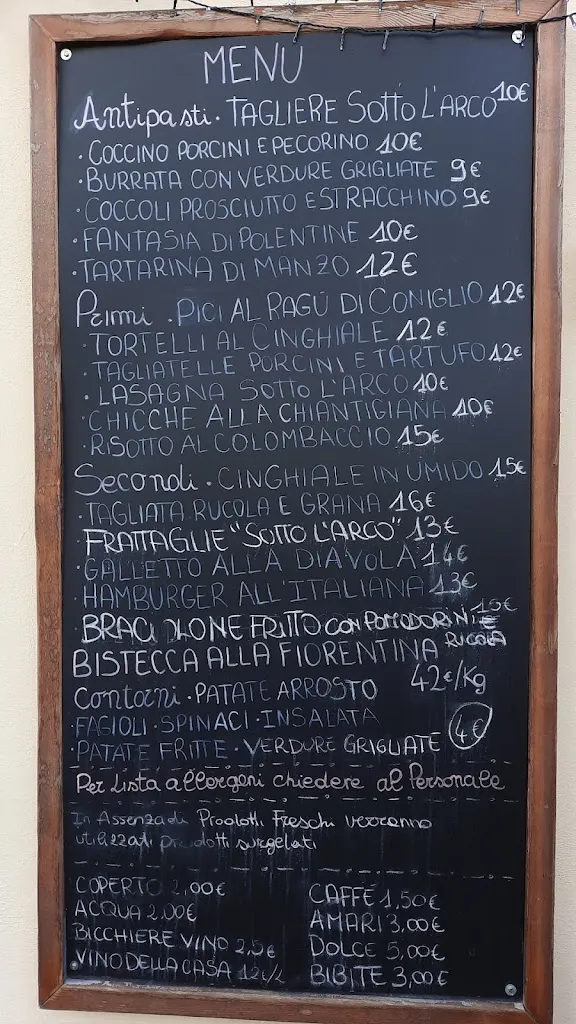 MENU
Antipasti · TAGLIERE SOTTO L'ARCO 10€
· COCCINO PORCINI E PECORINO 10€
· BURRATA CON VERDURE GRIGLIATE 9€
· COCCOLI PROSCIUTTO E STRACCHINO 9€
· FANTASIA DI POLENTINE 10€
· TARTARINA DI MANZO 12€
Primi · PICI AL RAGÚ DI CONIGLIO 12€
· TORTELLI AL CINGHIALE 12€
· TAGLIATELLE PORCINI E TARTUFO 12€
· LASAGNA SOTTO L'ARCO 10€
· CHICCHE ALLA CHIANTIGIANA 10€
· RISOTTO AL COLOMBACCIO 15€
Secondi · CINGHIALE IN UMIDO 15€
· TAGLIATA RUCOLA E GRANA 16€
FRATTAGLIE "SOTTO L'ARCO" 13€
· GALLETTO ALLA DIAVOLA 14€
· HAMBURGER ALL'ITALIANA 13€
BRACIOLONE FRITTO CON POMODORINI E RUCOLA 15€
BISTECCA ALLA FIORENTINA 42€/Kg
Contorni · PATATE ARROSTO
· FAGIOLI · SPINACI · INSALATA
· PATATE FRITTE · VERDURE GRIGLIATE 4€
Per Lista allergeni chiedere al Personale
In Assenza di Prodotti Freschi verranno
utilizzati prodotti surgelati
COPERTO 2,00€
ACQUA 2,00€
BICCHIERE VINO 2,5€
VINO DELLA CASA 12€/L
CAFFÈ 1,50€
AMARI 3,00€
DOLCE 5,00€
BIBITE 3,00€